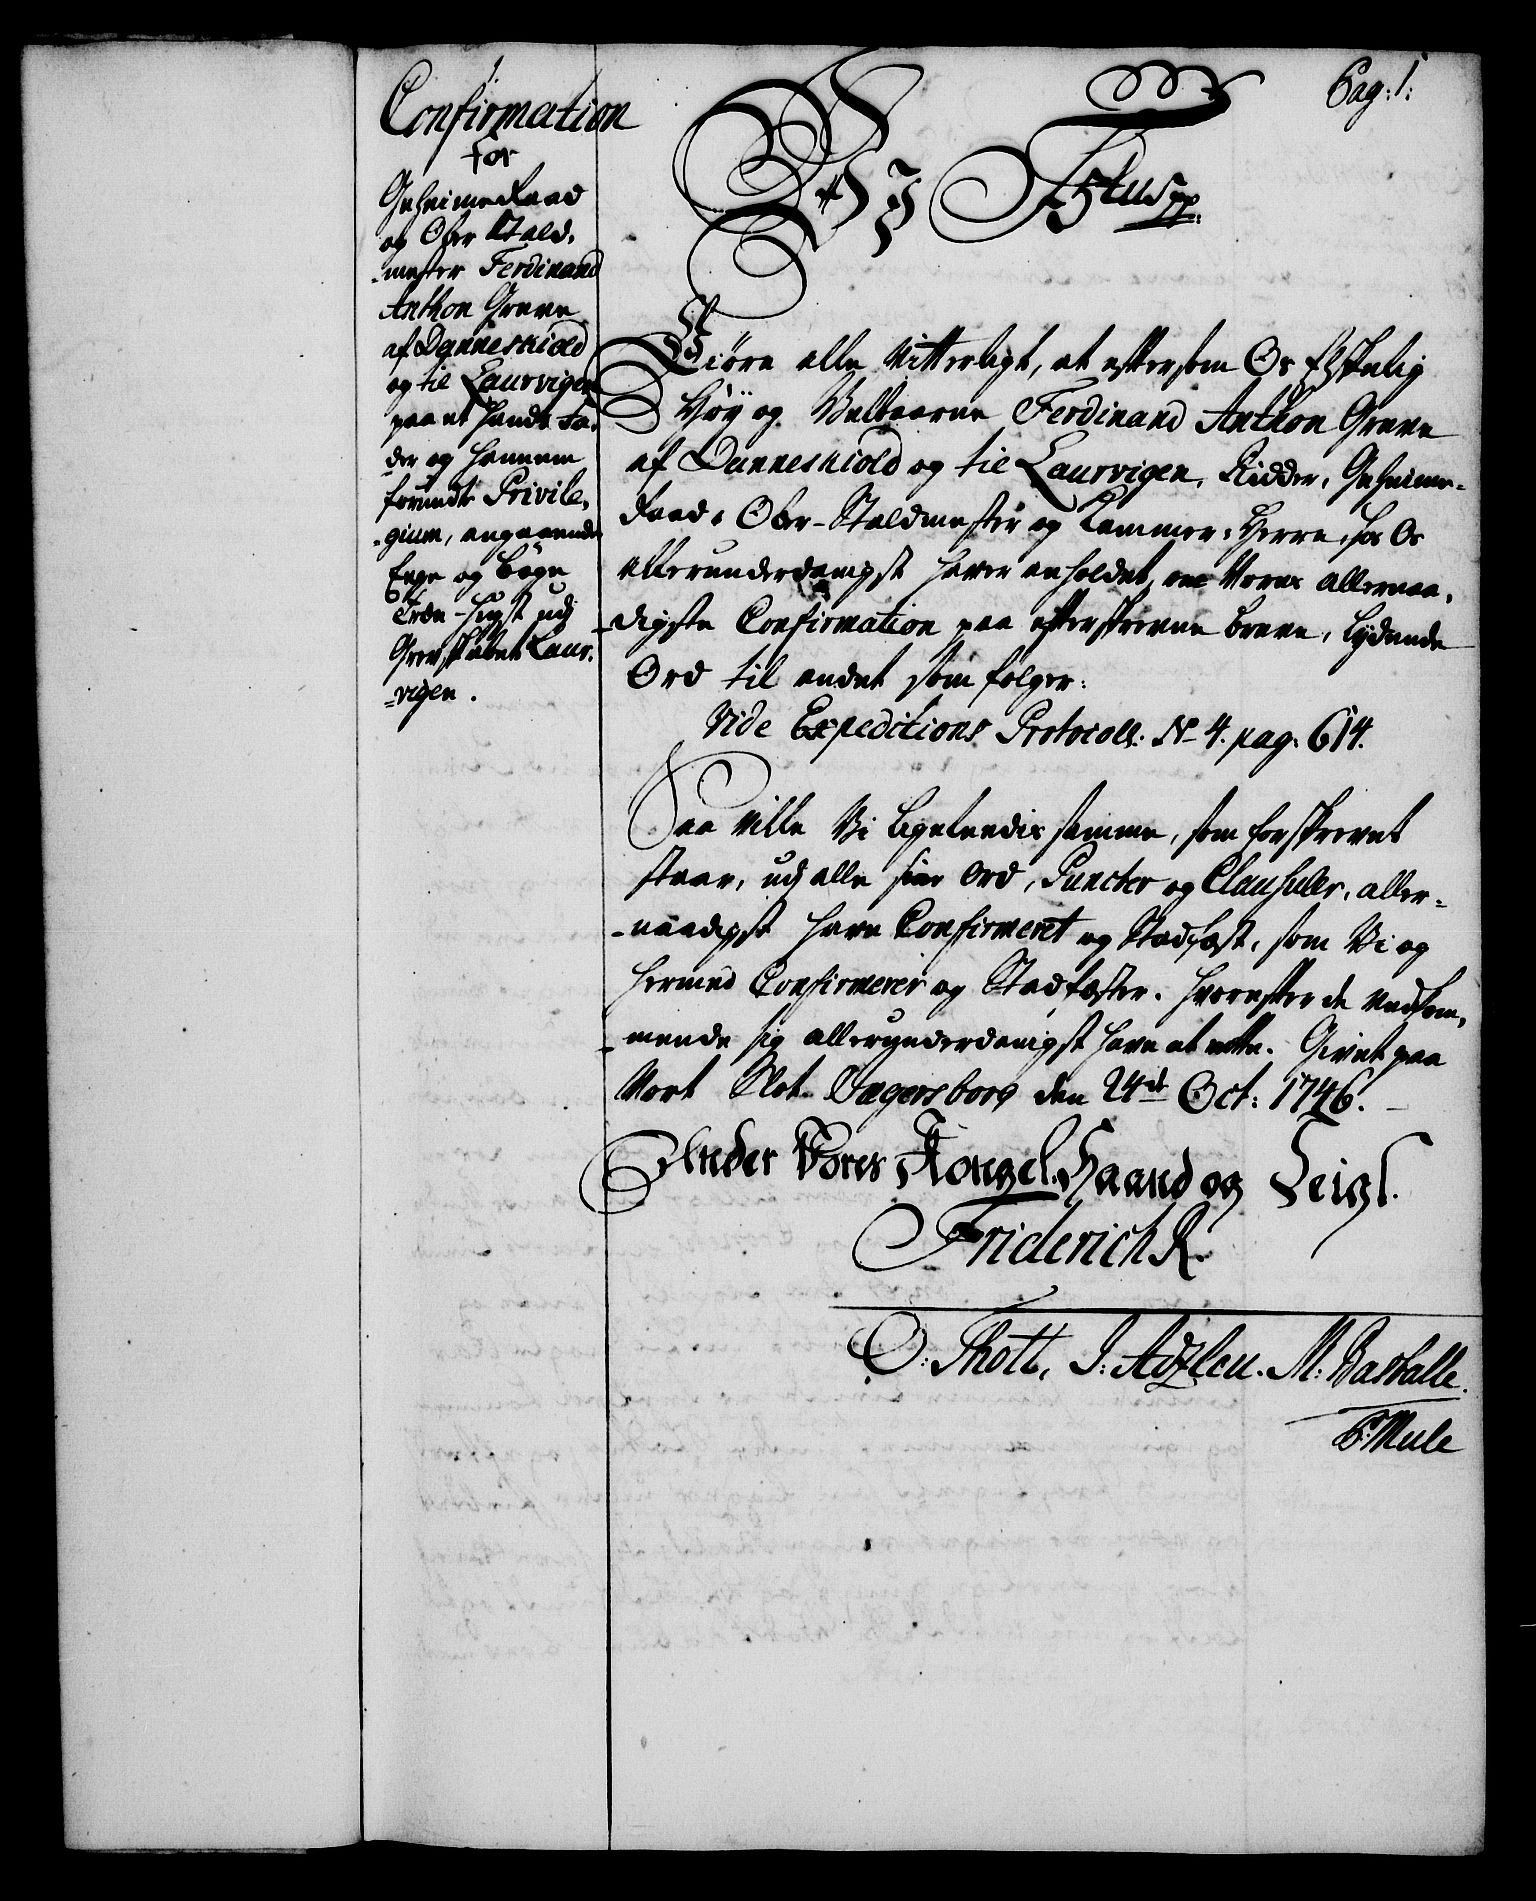 Pag: 1:
Confirmation
for
Geheimeraad
og Ober Stald-
-mester Ferdinand
Anthon Greve
af Danneskiold
og til Laurvigen
paa et hands Fa-
der og hannem
forundt Privile-
-gium, angaaende
Eege og Bøge
Træe-hugst udj
Grevskabet Laur-
-vigen.
Wj F 5tus pp:
Giøre alle Vitterligt, at eftersom Os Elskelig
Høy og Velbaarne Ferdinand Anthon Greve
af Danneskiold og til Laurvigen, Ridder, Geheime-
Raad, Ober-Staldmester og Kammer-Herre, hos Os
allerunderdanigst haver anholdet om Vores allernaa-
-digste Confirmation paa efterskrevne breve, lydende
Ord til andet som følger:
Vide Expeditions Protocoll: No 4. pag: 614.
Saa Ville Vi ligeledis samme, som forskrevet
staar, udj alle sine Ord, Puncter og Clausuler, aller-
-naadigst have Confirmeret og Stadfæst, som Vi og
hermed Confirmerer og Stadfæster. Hvorefter de Vedkom-
-mende sig allerunderdanigst have at rette. Givet paa
Vort Slot Jægersborg den 24de Oct: 1746.
Under Vores Kongel. Haand og Seigl.
Friderich R.
O: Thott, J: Adzlew. M: Barballe.
P: Mule